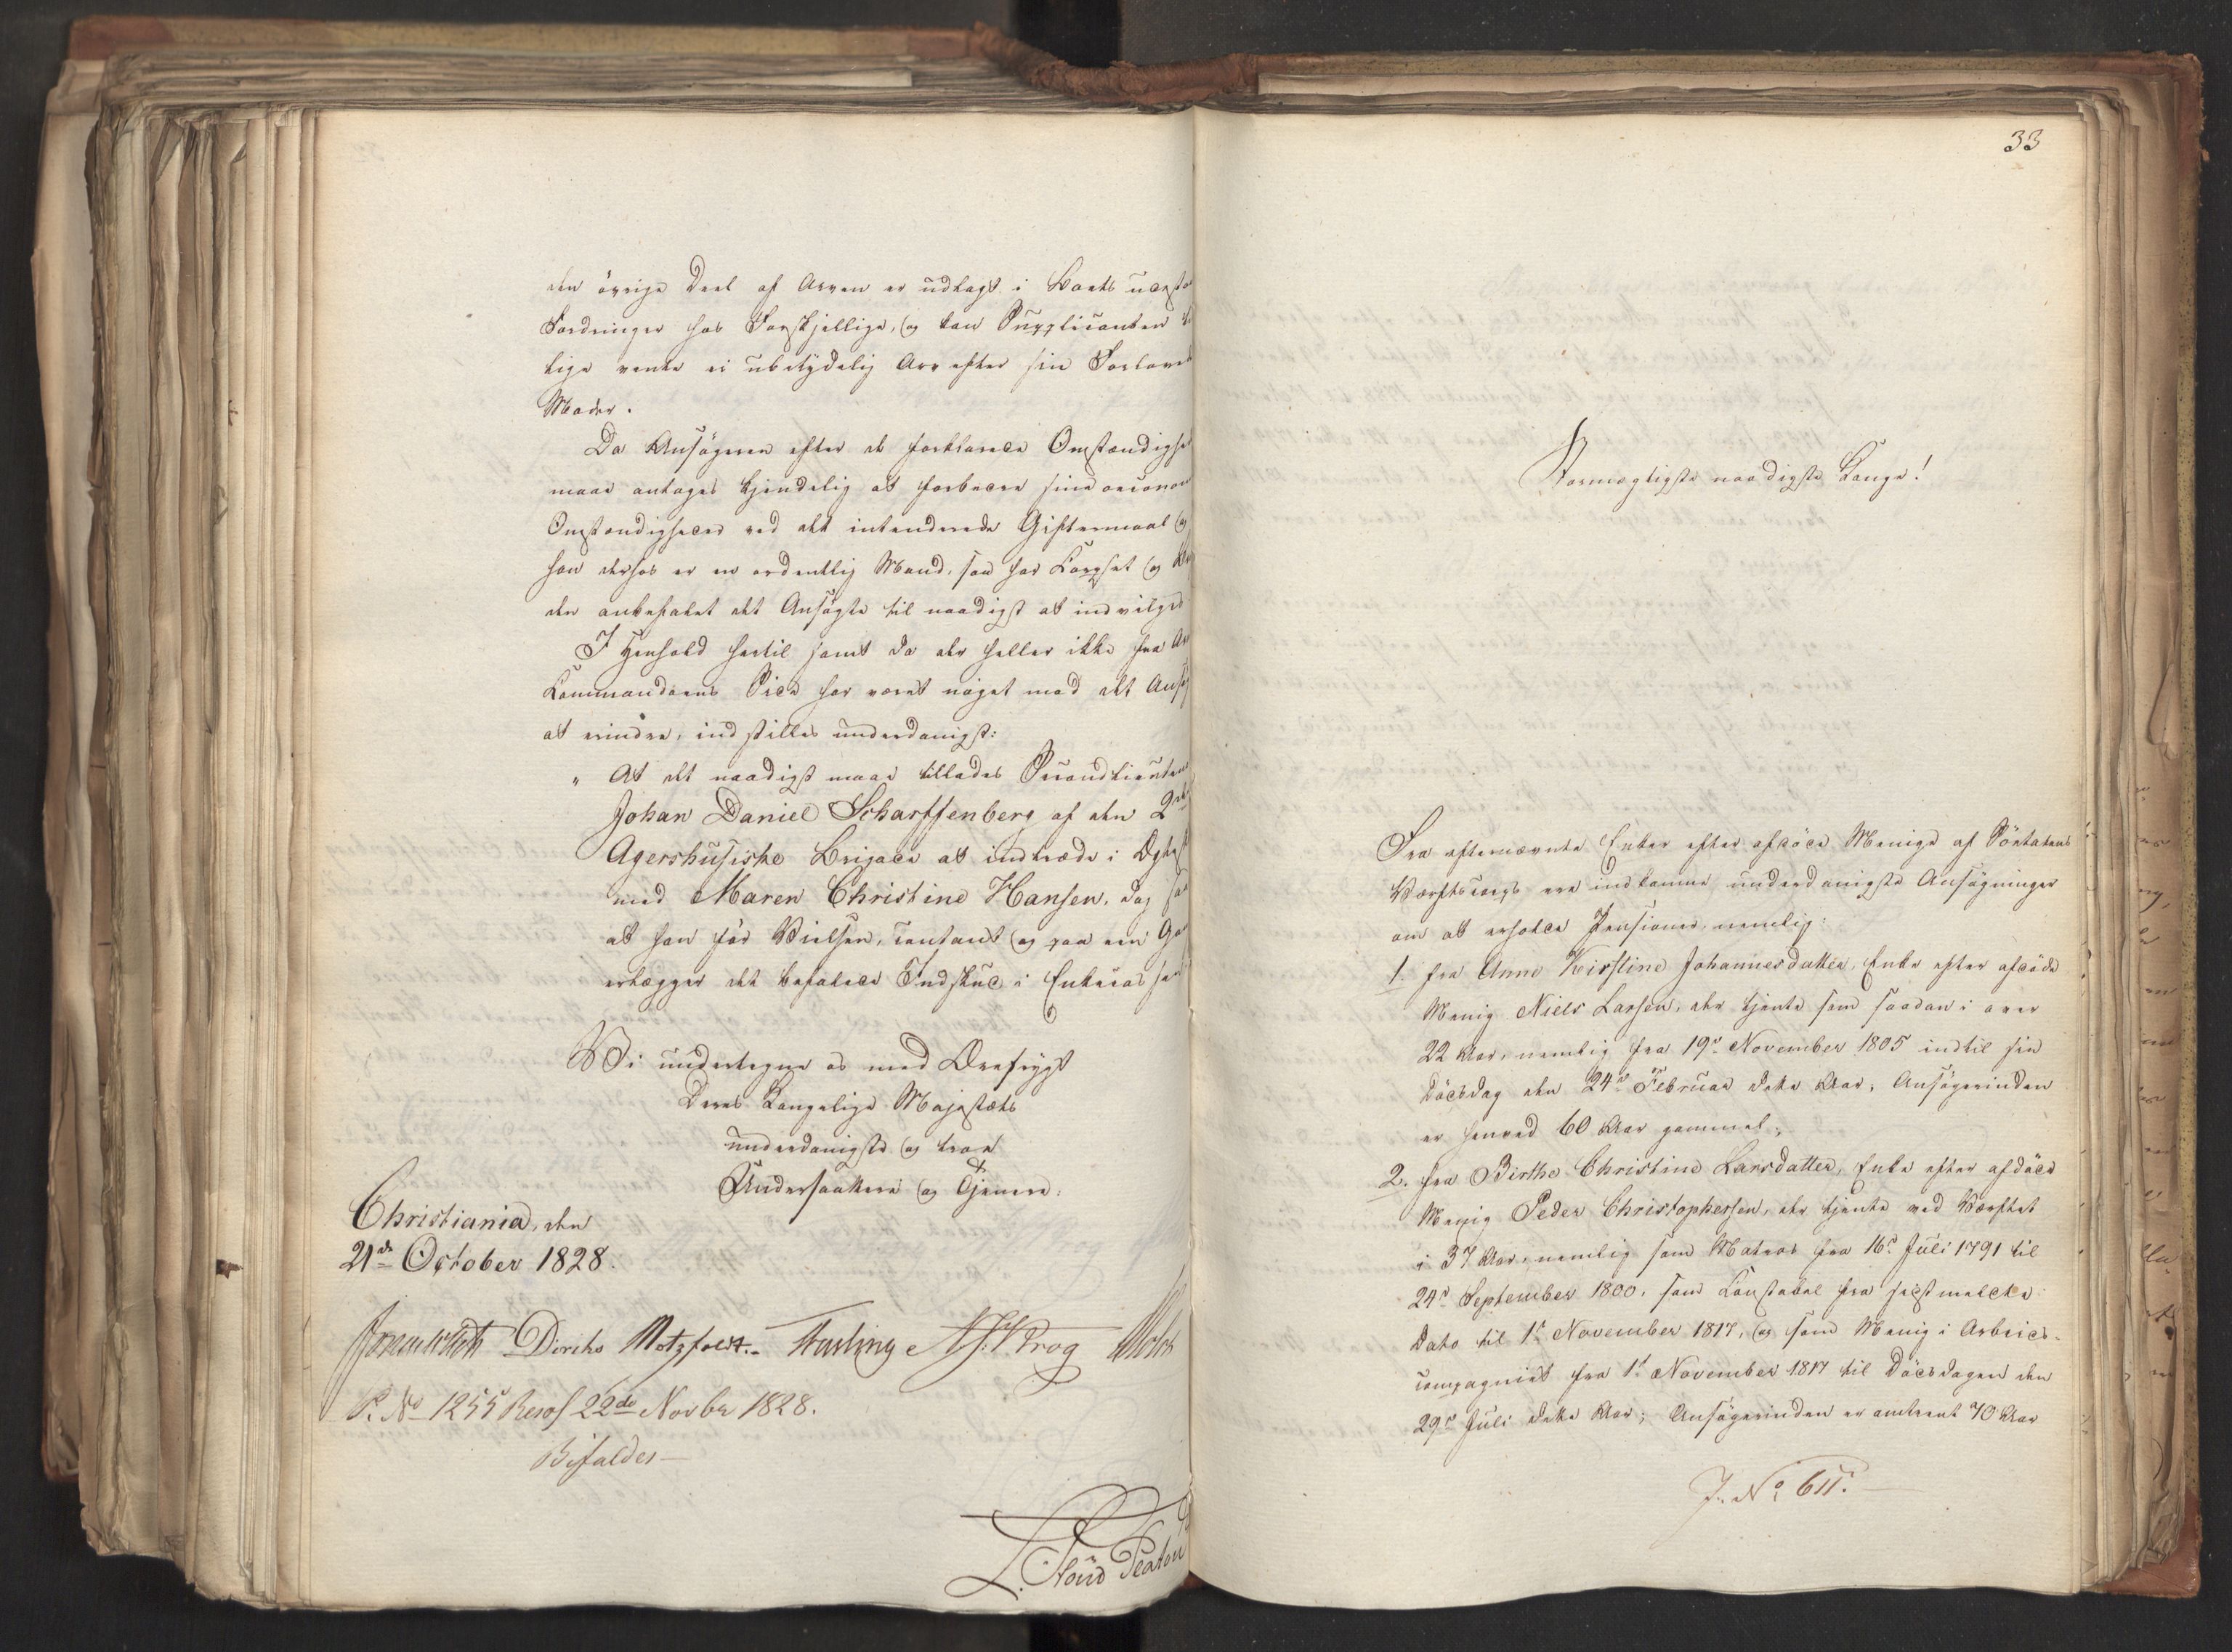 den øvrige Deel af Arven er udlagt i Boets uvisse
Fordringer hos Forskjellige, og kan Supplicanten
lige vente ei ubetydelig Arv efter sin Forlovedes
Moder.
Da Ansøgeren efter de forklarede Omstændigheder
maae antages kjendelig at forbedre sine oeconom
Omstændigheder ved det intenderede Giftermaal og
han derhos er en ordentlig Mand, saa har Corpset og
den anbefalet det Ansøgte til naadigst at indvilges
I Henhold hertil samt da der heller ikke fra
Commandoens Side har været noget mod det Ansøgte
at erindre, indstilles underdanigst:
" At det naadigst maae tillades Secondlieutenant
Johan Daniel Scharffenberg af den 2den
Agershusiske Brigade at indtræde i Ægteskab
med Maren Christine Hansen, dog saa
at han før Vielsen, contant og paa een Gang
erlægger det befalede Indskud i Enkecassen
Vi undertegne os med Ærefrygt
Deres Kongelige Majestæts
underdanigste og troe
Undersaattere og Tjenere:
Christiania, den
21de October 1828.
Diriks Motzfeldt. Fasting N. J. Krog
P. No 1255 Resol 22de Novbr 1828.
Bifaldes
L. Stoud Platou
33
Stormægtigste naadigste Konge!
Fra efternævnte Enker efter afdøde Menige af Søetatens
Værftscorps ere indkomne underdanigste Ansøgninger
om at erholde Pensioner, nemlig:
1. fra Anne Kirstine Johannesdatter, Enke efter afdøde
Menig Niels Larsen, der tjente som saadan i over
22 Aar, nemlig fra 19de November 1805 indtil sin
Dødsdag den 24de Februar dette Aar; Ansøgerinden
er henved 60 Aar gammel;
2. fra Birthe Christine Larsdatter, Enke efter afdøde
Menig Peder Christophersen, der tjente ved Værftet
i 37 Aar, nemlig som Matros fra 16de Juli 1791 til
24de September 1800, som Konstabel fra sidstmeldte
Dato til 1ste November 1817, og som Menig i Arbeids-
compagniet fra 1ste November 1817 til Dødsdagen den
29de Juli dette Aar; Ansøgerinden er omtrent 70 Aar
J. No 611.